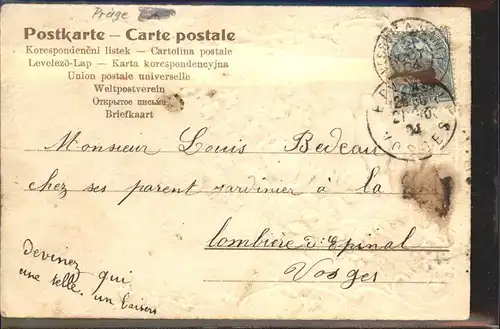 Präge
Postkarte — Carte postale
Korespondenční listek — Cartolina postale
Levelező-Lap — Karta korespondencyjna
Union postale universelle
Weltpostverein
Открытое письмо
Briefkaart
Monsieur Louis Bedeau
chez ses parent jardinier à la
lombière d'Epinal
Vosges
Devinez qui
une belle. un baisers